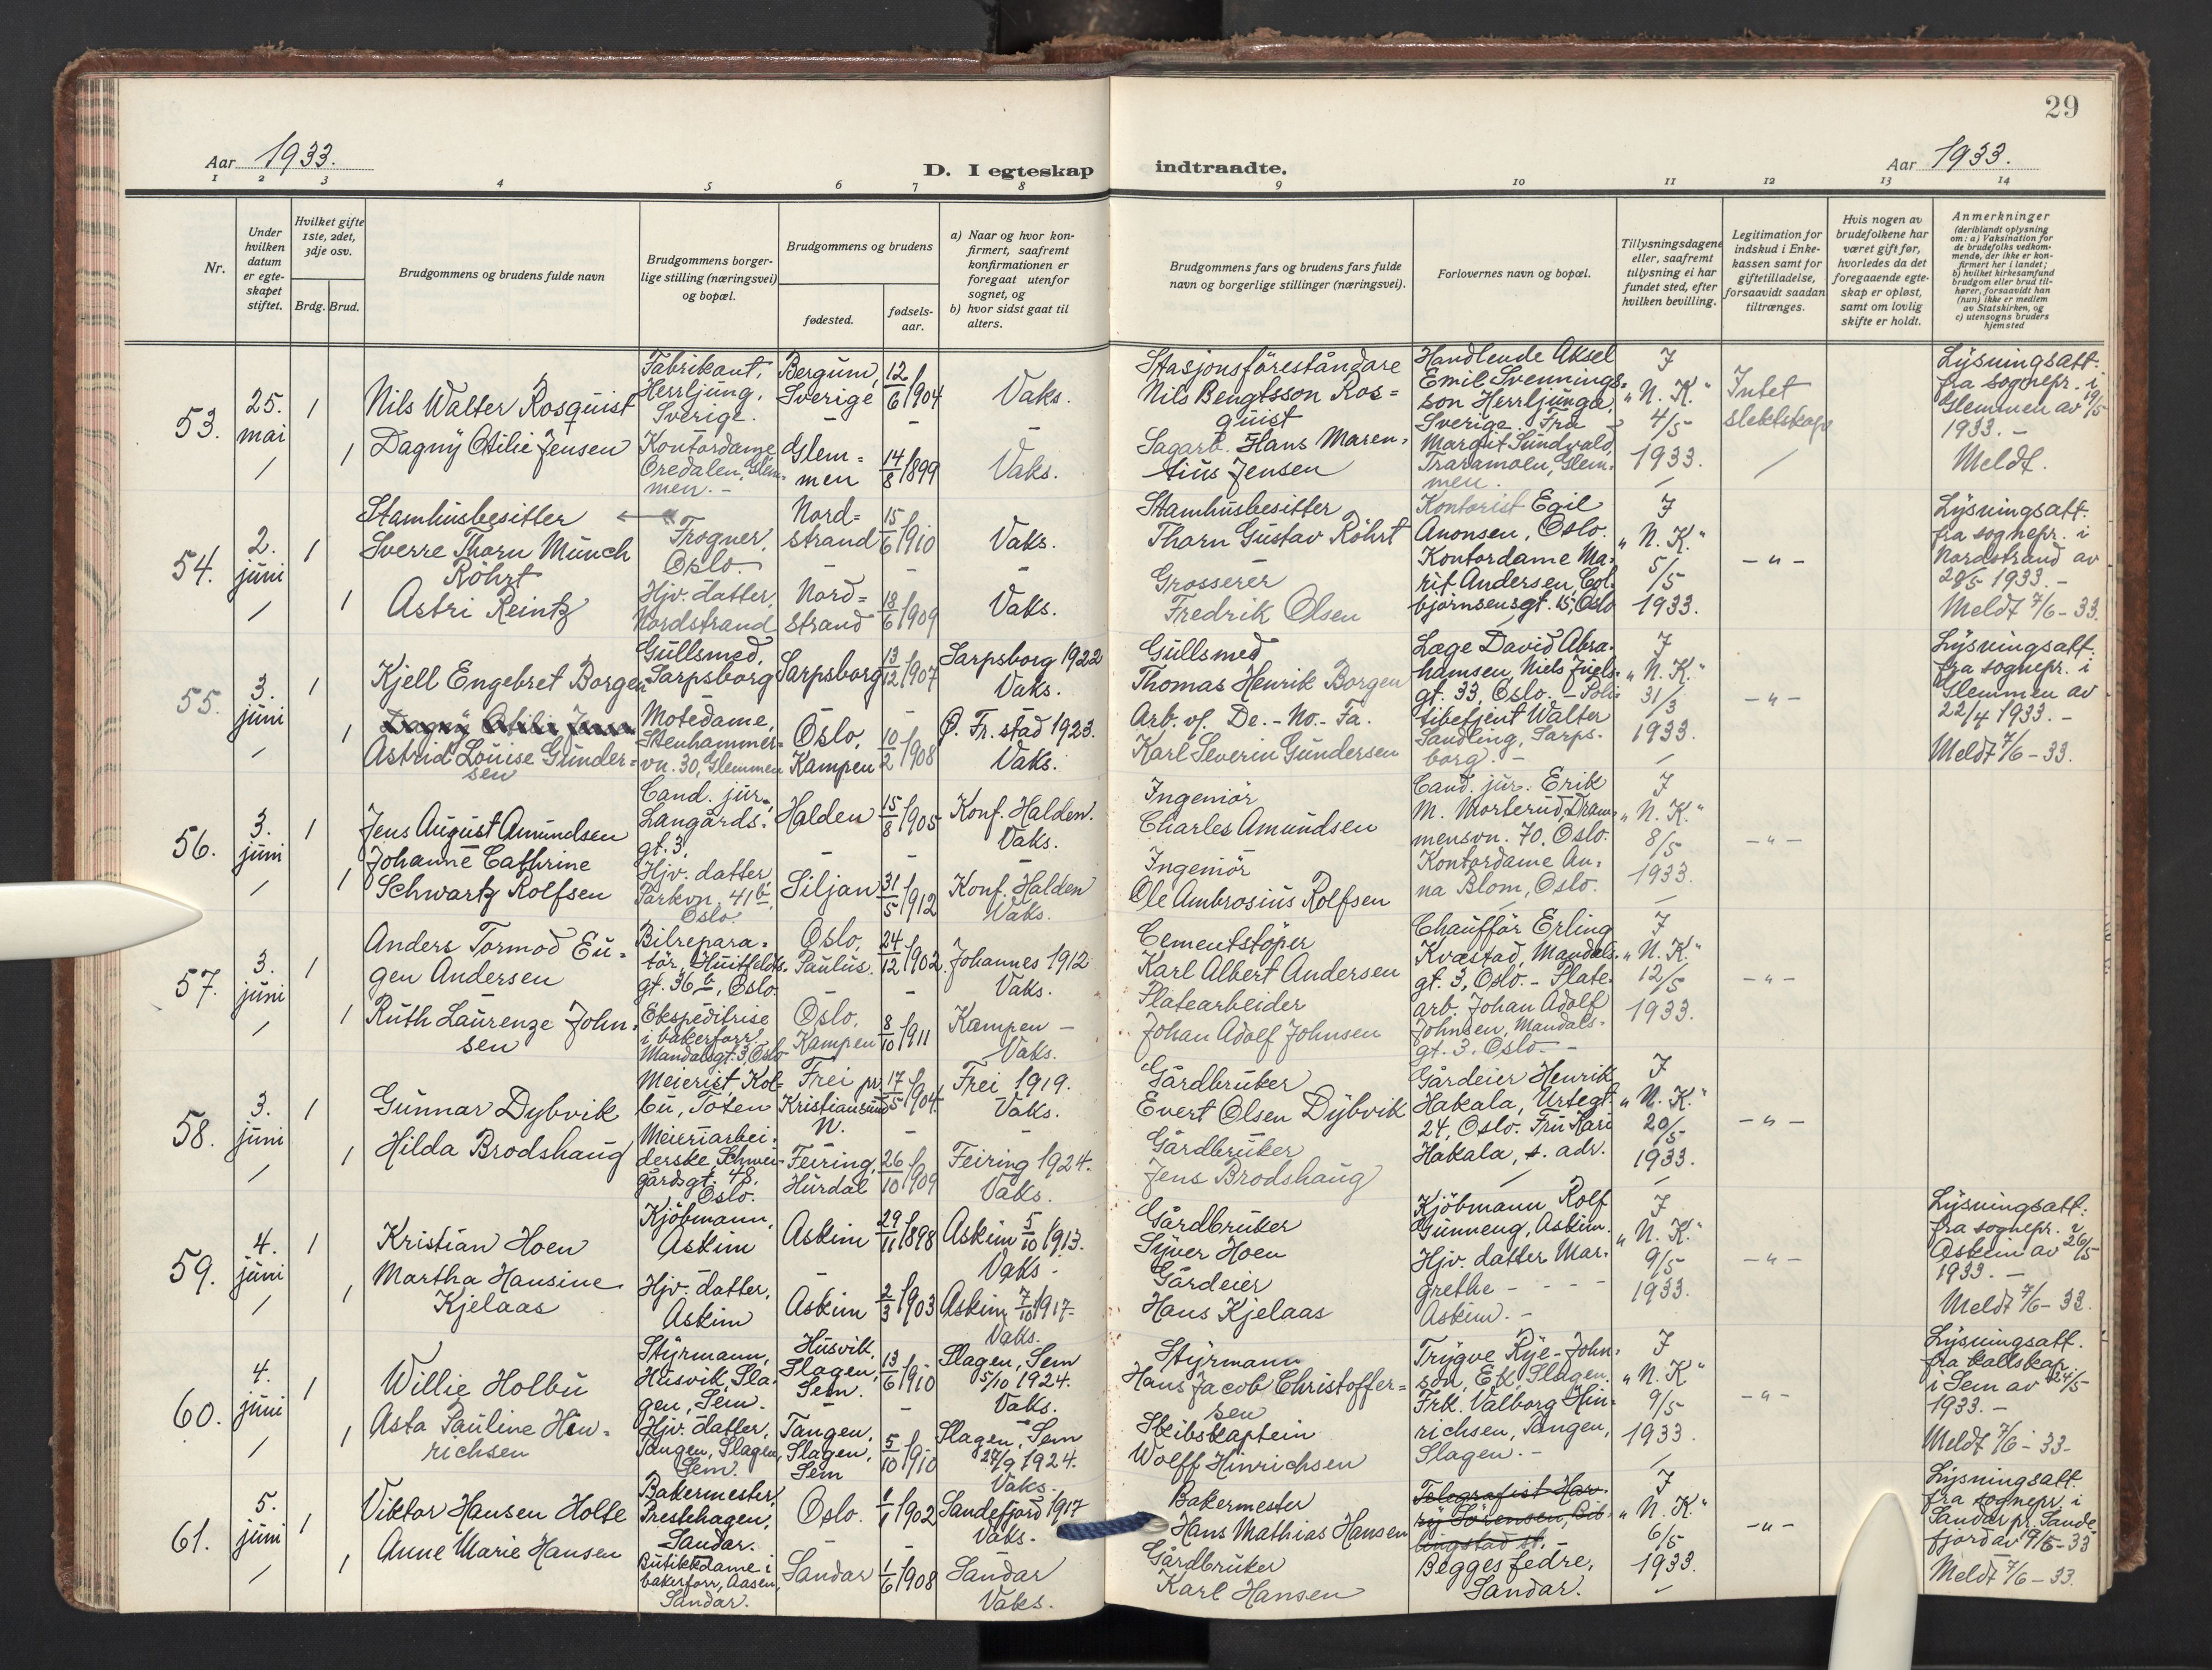 29
Aar 1933.
D. I egteskap indtraadte.
Aar 1933.
1 2 3 4 5 6 7 8 9 10 11 12 13 14
Nr.
Under hvilken datum er egteskapet stiftet.
Hvilket gifte 1ste, 2det, 3dje osv.
Brdg. Brud.
Brudgommens og brudens fulde navn
Brudgommens borgerlige stilling (næringsvei) og bopæl.
Brudgommens og brudens
fødested.
fødselsaar.
a) Naar og hvor konfirmert, saafremt konfirmationen er foregaat utenfor sognet, og
b) hvor sidst gaat til alters.
Brudgommens fars og brudens fars fulde navn og borgerlige stillinger (næringsvei).
Forlovernes navn og bopæl.
Tillysningsdagene eller, saafremt tillysning ei har fundet sted, efter hvilken bevilling.
Legitimation for indskud i Enkekassen samt for giftetilladelse, forsaavidt saadan tiltrænges.
Hvis nogen av brudefolkene har været gift før, hvorledes da det foregaaende egteskap er opløst, samt om lovlig skifte er holdt.
Anmerkninger (deriblandt oplysning om: a) Vaksination for de brudefolks vedkommende, der ikke er konfirmert her i landet; b) hvilket kirkesamfund brudgom eller brud tilhører, forsaavidt han (hun) ikke er medlem av Statskirken, og c) utensogns bruders hjemsted
53. 25. mai 1 Nils Walter Rosquist
Fabrikant, Herrljung, Sverige.
Bergum, Sverige 12/6 1904 Vaks.
Stasjonsföreståndare Nils Bengtsson Rosquist
1 Dagny Otilie Jensen
Kontordame Oredalen, Glemmen. -
Glemmen 14/8 1899 Vaks.
Sagarb. Hans Marentius Jensen
Handlende Aksel Emil Svenningsson Herrljunga, Sverige. Frø Margit Sundvald, Traramoen, Glemmen.
I "N. K." 4/5 1933.
Intet slektskap
Lysningsatt. fra sognepr. i Glemmen av 19/5 1933. -
Meldt.
54. 2. juni 1 Stamhusbesitter Sverre Thorn Münch Röhrt
Frogner, Oslo.
Nordstrand 15/6 1910 Vaks.
Stamhusbesitter Thorn Gustav Röhrt
1 Astri Reintz
Hjv. datter, Nordstrand
Nordstrand 18/6 1909 Vaks.
Grosserer Fredrik Olsen
Kontorist Egil Anonsen, Oslo. Kontordame Marit Andersen, Colbjørnsensgt. 15, Oslo
I "N. K." 5/5 1933.
- " -
Lysningsatt. fra sognepr. i Nordstrand av 20/5 1933. -
Meldt 7/6 - 33.
55. 3. juni 1 Kjell Engebret Borgen
Gullsmed, Sarpsborg
Sarpsborg 13/12 1907 Sarpsborg 1922 Vaks.
Gullsmed Thomas Henrik Borgen
1 Astrid Louise Gundersen
Motedame, Stenhammervn. 30, Glemmen
Oslo, Kampen 10/2 1908 Ø. Fr.stad 1923. Vaks.
Arb. v/. De. - No. - Fa. Karl Severin Gundersen
Læge David Abrahamsen, Niels Juels gt. 33, Oslo. - Politibetjent Walter Sandling, Sarpsborg. -
I "N. K." 31/3 1933.
- " -
Lysningsatt. fra sognepr. i Glemmen av 22/4 1933. -
Meldt 7/6 - 33.
56. 3. juni 1 Jens August Amundsen
Cand. jur., Langårdsgt. 3.
Halden 15/8 1905 Konf. Halden. Vaks.
Ingeniør Charles Amundsen
1 Johanne Cathrine Schwartz Rolfsen
Hjv. datter Parkvn. 41 b, Oslo.
Siljan 31/5 1912 Konf. Halden Vaks.
Ingeniør Ole Ambrosius Rolfsen
Cand. jur. Erik M. Morterud, Drammensvn. 70, Oslo. Kontordame Anna Blom, Oslo.
I "N. K." 8/5 1933.
- " -
57. 3. juni 1 Anders Tormod Eugen Andersen
Bilreparatör, Huitfeldtsgt. 36 b, Oslo.
Oslo, Paulus. 24/12 1902. Johannes 1912 Vaks.
Cementstöper Karl Albert Andersen
1 Ruth Laurenze Johnsen
Ekspeditrise i bakerforr. Mandalsgt. 3 Oslo
Oslo, Kampen 8/10 1911 Kampen - Vaks.
Platearbeider Johan Adolf Johnsen
Chaufför Erling Kvæstad, Mandalsgt. 3, Oslo. - Platearb. Johan Adolf Johnsen, Mandalsgt. 3. Oslo. -
I "N. K." 12/5 1933.
- " -
58. 3. juni 1 Gunnar Dybvik
Meierist Kolbu, Toten
Frei pr. Kristiansund N. 17/5 1904 Frei 1919. Vaks.
Gårdbruker Evert Olsen Dybvik
1 Hilda Brodshaug
Meieriarbeiderske, Schweigårdsgt. 48, Oslo.
Feiring, Hurdal 26/10 1909 Feiring 1924. Vaks.
Gårdbruker Jens Brodshaug
Gårdeier Henrik Hakala, Urtegt. 24, Oslo. Fru Kari Hakala, s. adr.
I "N. K." 20/5 1933.
- " -
59. 4. juni 1 Kristian Hoen
Kjöbmann, Askim
Askim 29/11 1898 Askim 5/10 1913. Vaks.
Gårdbruker Syver Hoen
1 Martha Hansine Kjelaas
Hjv. datter, Askim
Askim 2/3 1903 Askim 7/10 1917. Vaks.
Gårdeier Hans Kjelaas
Kjöbmann Rolf Gunneng, Askim. Hjv. datter Margrethe - - - - Askim. -
I "N. K." 9/5 1933.
- " -
Lysningsatt. fra sognepr. i Askim av 26/5 1933. -
Meldt 7/6 - 33.
60. 4. juni 1 Willie Holbu
Styrmann, Husvik, Slagen, Sem.
Husvik, Slagen, Sem. 13/6 1910 Slagen, Sem 5/10 1924. Vaks.
Styrmann Hans Jacob Christoffersen
1 Asta Pauline Hinrichsen
Hjv. datter, Tangen, Slagen, Sem.
Tangen, Slagen, Sem 5/10 1910 Slagen, Sem 27/9 1924. Vaks.
Skibskaptein Wolff Hinrichsen
Trygve Rye-Johnson, Ek, Slagen. Frk. Valborg Hinrichsen, Tangen, Slagen. -
I "N. K" 9/5 1933.
- " -
Lysningsatt. fra kallskap. i Sem av 24/5 1933. -
Meldt 7/6 - 33 -
61. 5. juni 1 Viktor Hansen Holte
Bakermester, Prestehagen, Sandar.
Oslo. 1902 Sandefjord 1917 Vaks.
Bakermester Hans Mathias Hansen
1 Anne Marie Hansen
Butikkdame i bakerforr, Aasen, Sandar.
Sandar 1/6 1908 Sandar Vaks.
Gårdbruker Karl Hansen
Begges fedre, Sandar.
I "N. K." 6/5 1933.
- " -
Lysningsatt. fra sognepr. i Sandar pr. Sandefjord av 19/5 - 33
Meldt 7/6 - 33.